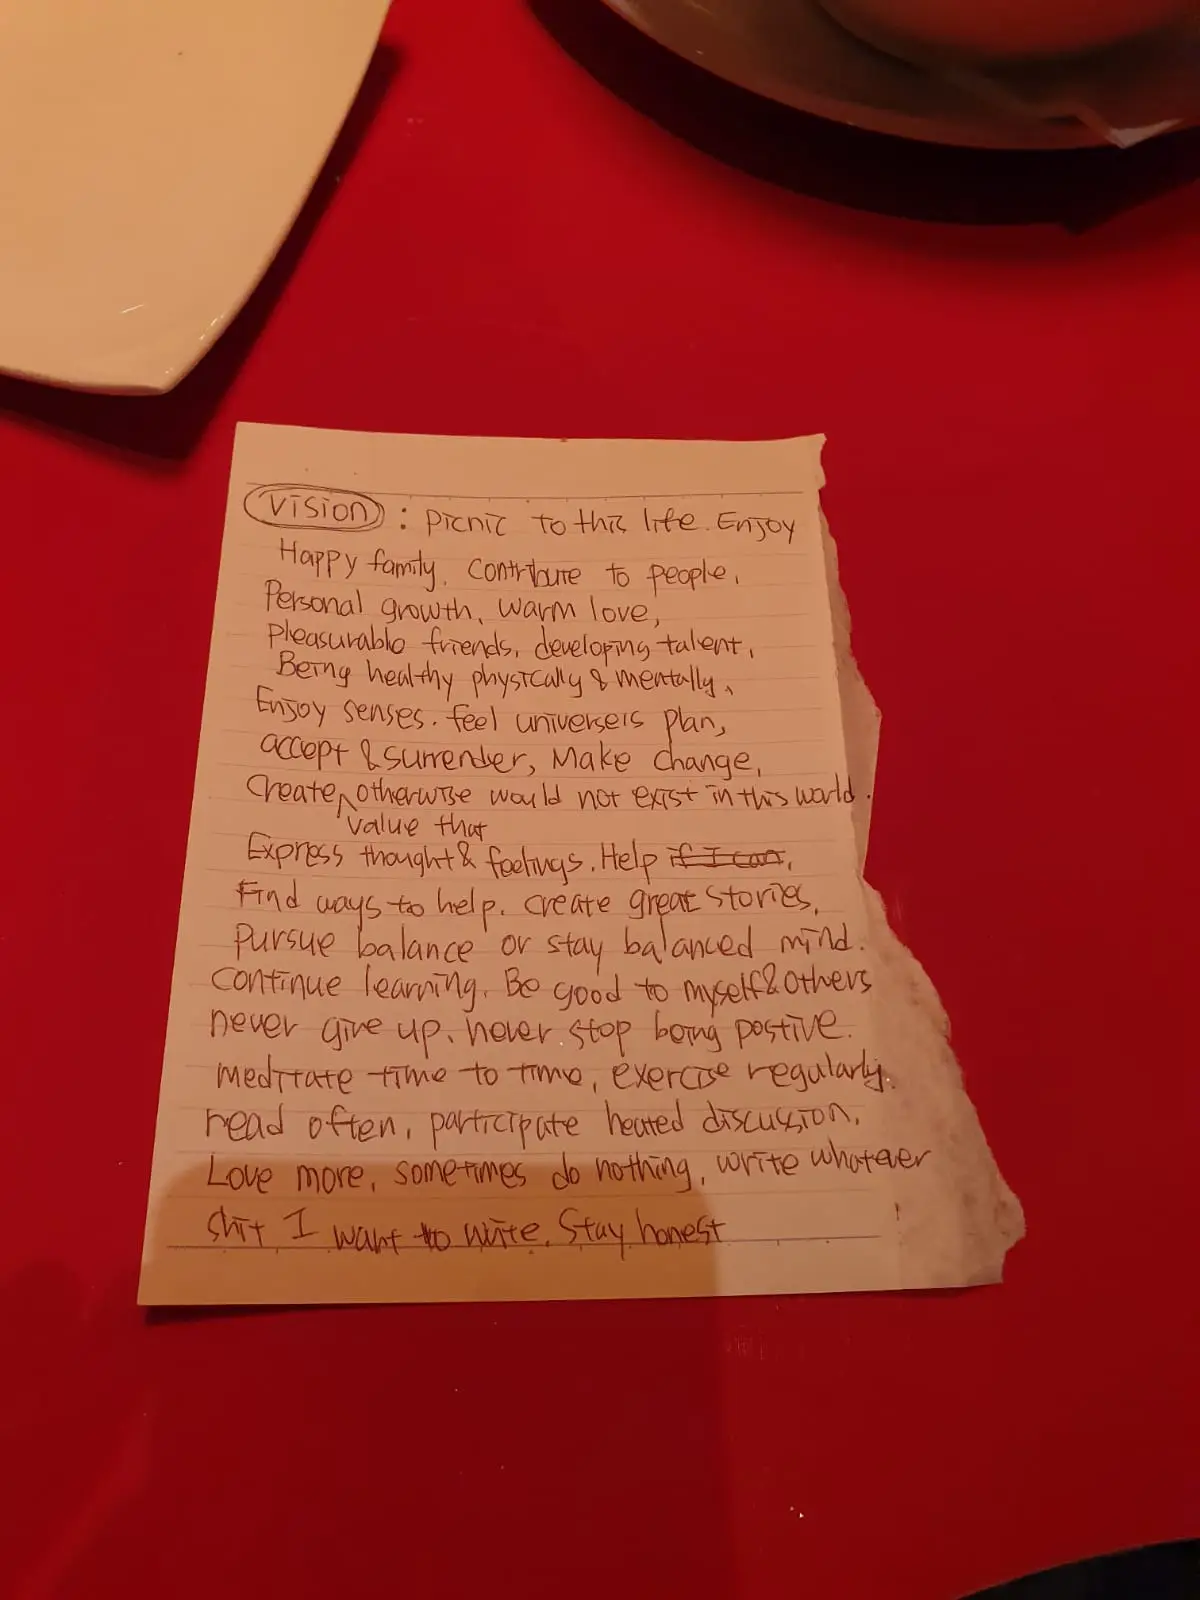 Vision : picnic to this life. Enjoy
Happy family. contribute to people,
Personal growth, warm love,
Pleasurable friends, developing talent,
Being healthy physically & mentally,
Enjoy senses. feel universeis plan,
accept & surrender, Make change,
Create otherwise would not exist in this world.
value that
Express thought & feelings. Help if I can,
Find ways to help. create great stories,
Pursue balance or stay balanced mind.
Continue learning. Be good to myself & others
never give up. never stop being postive.
meditate time to time, exercise regularly.
read often, participate heated discussion,
Love more, sometimes do nothing, write whatever
shit I want to write. Stay honest